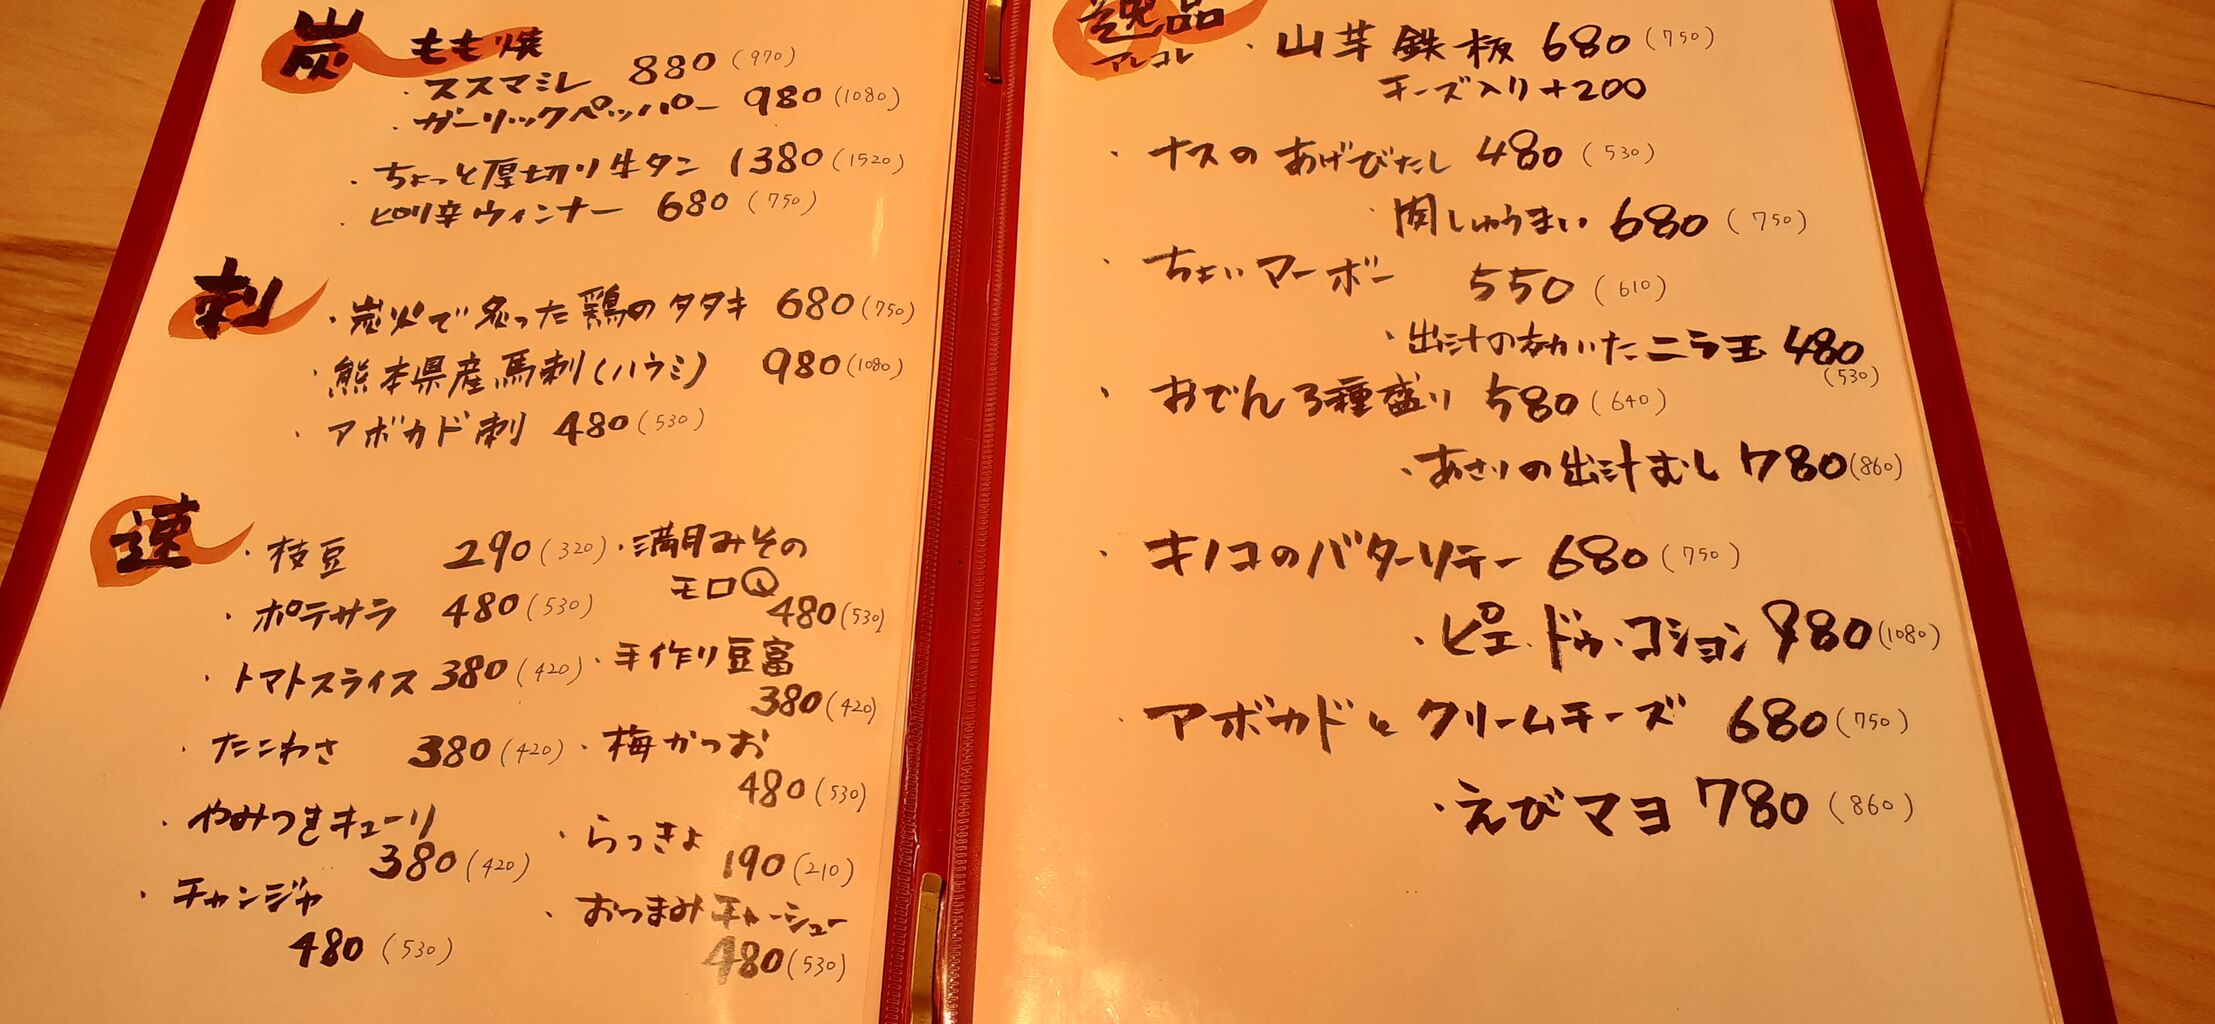 炭
もも焼
・ススマミレ 880 (970)
・ガーリックペッパー 980 (1080)
・ちょっと厚切り牛タン 1380 (1520)
・ピリ辛ウィンナー 680 (750)
刺
・炭火で炙った鶏のタタキ 680 (750)
・熊本県産馬刺(ハウミ) 980 (1080)
・アボカド刺 480 (530)
速
・枝豆 290 (320)
・ポテサラ 480 (530)
・トマトスライス 380 (420)
・たこわさ 380 (420)
・やみつきキューリ
380 (420)
・チャンジャ
480 (530)
・満月みその
モロQ
480 (530)
・手作り豆富
380 (420)
・梅かつお
480 (530)
・らっきょ
190 (210)
・おつまみチャーシュー
480 (530)
逸品
アレコレ
・山芋鉄板 680 (750)
チーズ入り+200
・ナスのあげびたし 480 (530)
・関しゅうまい 680 (750)
・ちょいマーボー 550 (610)
・出汁の効いたニラ玉 480
(530)
・おでん3種盛り 580 (640)
・あさりの出汁むし 780 (860)
・キノコのバターソテー 680 (750)
・ピエ・ドゥ・コション 980 (1080)
・アボカドとクリームチーズ 680 (750)
・えびマヨ 780 (860)